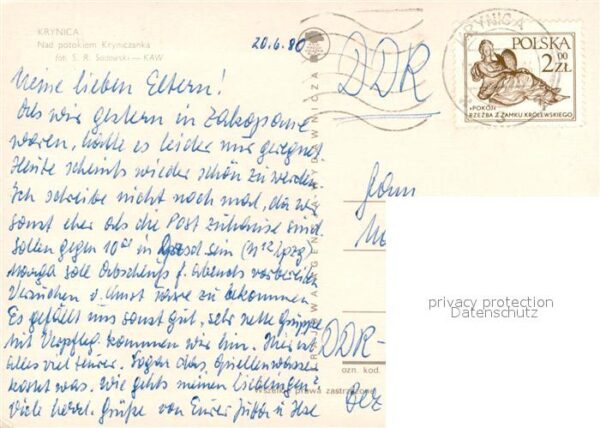 KRYNICA
Nad potokiem Kryniczanka
fot. S. R. Sadowski — KAW
20.6.80
Meine lieben Eltern!
Als wir gestern in Zakopane
waren, hatte es leider nur geregnet,
Heute scheint's wieder schön zu werden.
Ich schreibe nicht noch mal, da wir
sonst eher als die Post zuhause sind.
Sollen gegen 10 in sein
Marga soll f. abends vorbereiten
Versuchen v. zu bekommen
Es gefällt uns sonst gut, sehr nette Gruppe
mit Verpfleg. kommen wir hin. Hier ist
alles viel teurer. Sogar das Quellenwasser
kostet was. Wie gehts meinen Lieblingen?
Viele herzl. Grüße von Eurer und Ilse
KRAJOWA AGENCJA WYDAWNICZA
DDR
KRYNICA
POLSKA
2 00 ZŁ
•POKÓJ•
RZEŹBA Z ZAMKU KRÓLEWSKIEGO
privacy protection
Datenschutz
DDR-
ozn. kod.
Wszelkie prawa zastrzeżone